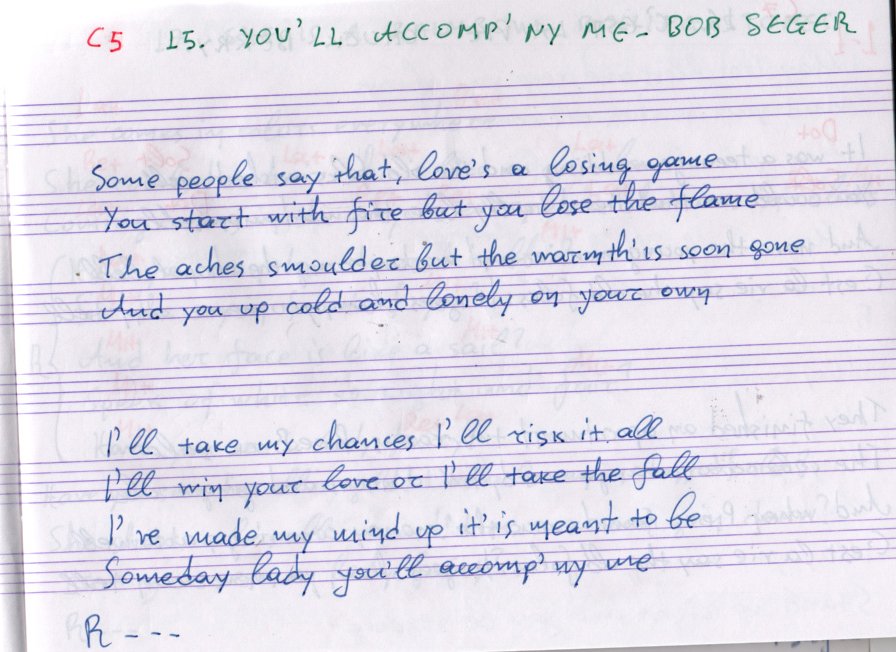 C5 15. YOU'LL ACCOMP'NY ME - BOB SEGER
Some people say that, love's a losing game
You start with fire but you lose the flame
The aches smoulder but the warmth'is soon gone
And you up cold and lonely on your own
I'll take my chances I'll risk it all
I'll win your love or I'll take the fall
I've made my mind up it'is meant to be
Someday lady you'll accomp'ny me
R - - -